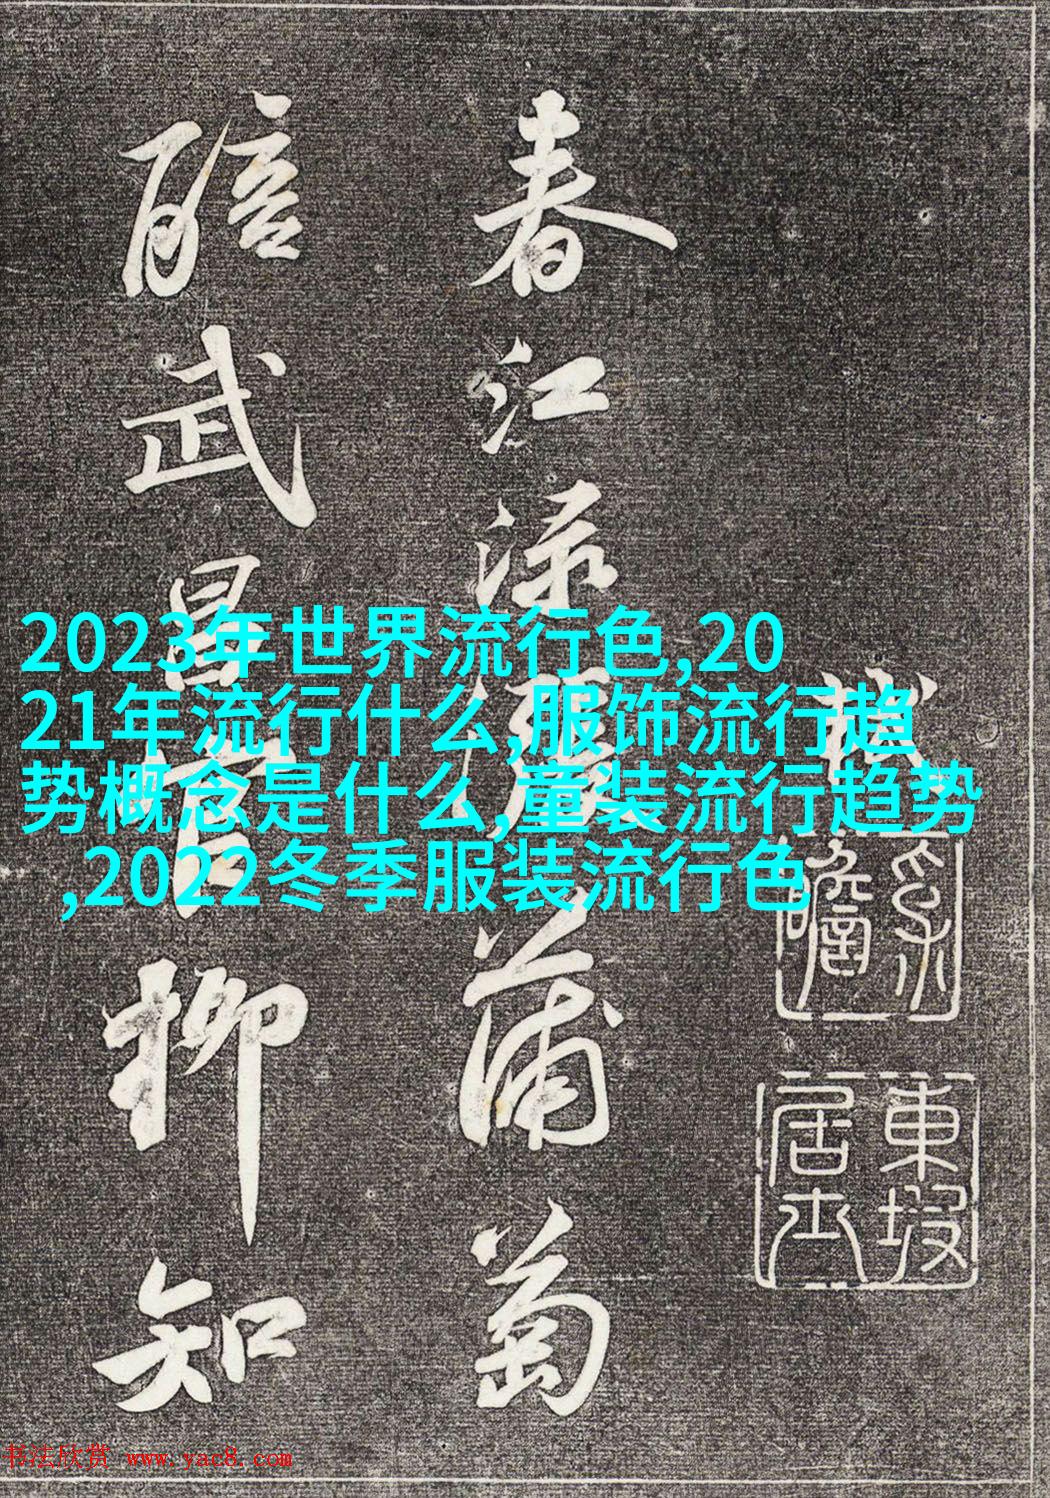 2023年世界流行色,20
21年流行什么,服饰流行趋
势概念是什么,童装流行趋势
,2022冬季服装流行色
東坡居士
春江渌漲蒲萄
醅武昌官柳知
书法欣赏 www.yac8.com